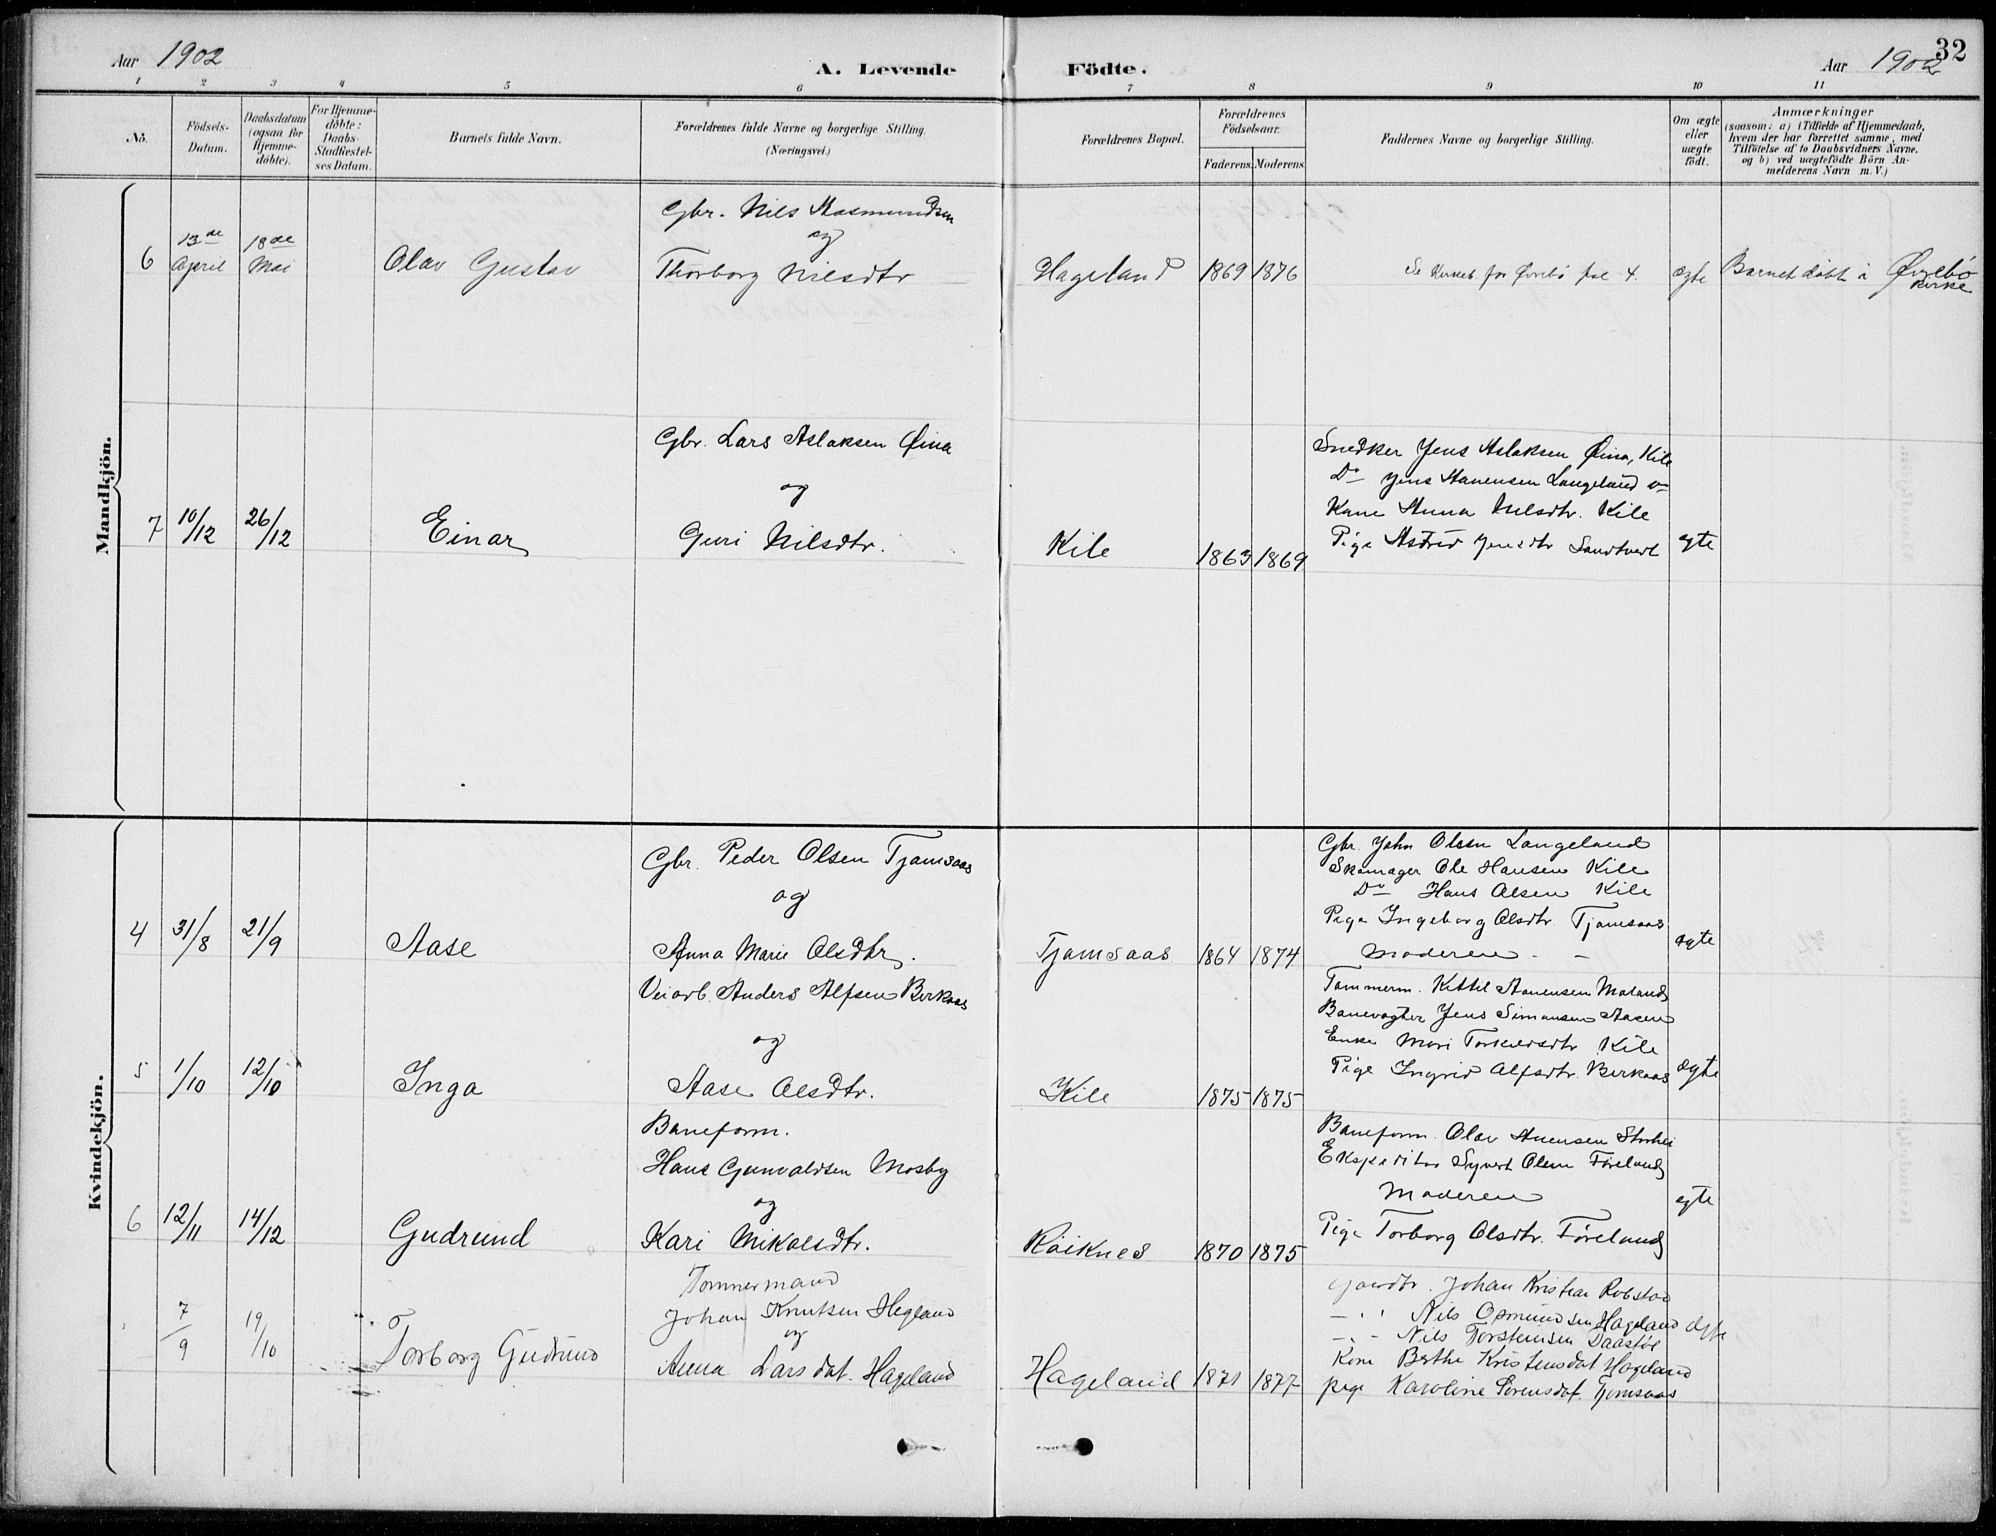 32
Aar 1902
A. Levende Födte.
Aar 1902
1 2 3 4 5 6 7 8 9 10 11
No.
Födsels-Datum.
Daabsdatum (ogsaa for Hjemme-döbte).
For Hjemme-döbte: Daabs-Stadfæstel-ses Datum.
Barnets fulde Navn.
Forældrenes fulde Navne og borgerlige Stilling.
(Næringsvei.)
Forældrenes Bopæl.
Forældrenes Födselsaar.
Faderens. Moderens.
Faddernes Navne og borgerlige Stilling.
Om ægte eller uægte födt.
Anmærkninger
(saasom: a) i Tilfælde af Hjemmedaab,
hvem der har forrettet samme, med
Tilföielse af to Daabsvidners Navne.
og b) ved uægtefödte Börn An-
melderens Navn m. V.)
Mandkjön.
6 13de April 18de Mai Olav Gustav
Gbr. Nils Aasmundsen
og
Thorborg Nilsdtr
Hageland 1869 1876
Se Kirkeb. for Øvrebö 4.
ægte
Barnet döbt i Øvrebö
Kirke
7 10/12 26/12 Einar
Gbr. Lars Aslaksen Øina
og
Guri Nilsdtr.
Kile 1863 1869
Snedker Jens Aslaksen Øina, Kile
Do Jens Aanensen Langeland
Kone Anna Nilsdtr. Kile
Pige Astrid Jensdtr Sandtveit
ægte
Kvindekjön.
4 31/8 21/9 Aase
Gbr. Peder Olsen Tjomsaas
og
Anna Marie Olsdtr.
Tjomsaas 1864 1874
Gbr. John Olsen Langeland
Skomager Ole Hansen Kile
Do Hans Olsen Kile
Pige Ingeborg Olsdtr. Tjomsaas
Moderen
ægte
5 1/10 12/10 Inga
Veiarb. Anders Alfsen Birkaas
og
Aase Olsdtr.
Kile 1875 1875
Tømmerm. Kittil Aanensen Moland
Banevogter Jens Simonsen Aasen
Enke Mari Torkildsdtr Kile
Pige Ingrid Alfsdtr. Birkaas
ægte
6 12/11 14/12 Gudrund
Baneform.
Hans Gunvaldsen Mosby
og
Kari Nikolsdtr.
Röiknes 1870 1875
Baneform. Olav Anensen
Ekspeditør Syvert Olsen Føreland
Moderen
Pige Torborg Olsdtr. Føreland
ægte
7/9 19/10 Torborg Gudrund
Tømmermand
Johan Knutsen Hegland
og
Anna Larsdat. Hageland
Hageland 1871 1877
Gaardbr. Johan Kristian Robstad
Nils Osmundsen Hageland
Nils Torsteinsen
Kone Berthe Kristensdat Hageland
pige Karoline Sorensdat. Tjomsaas
ægte